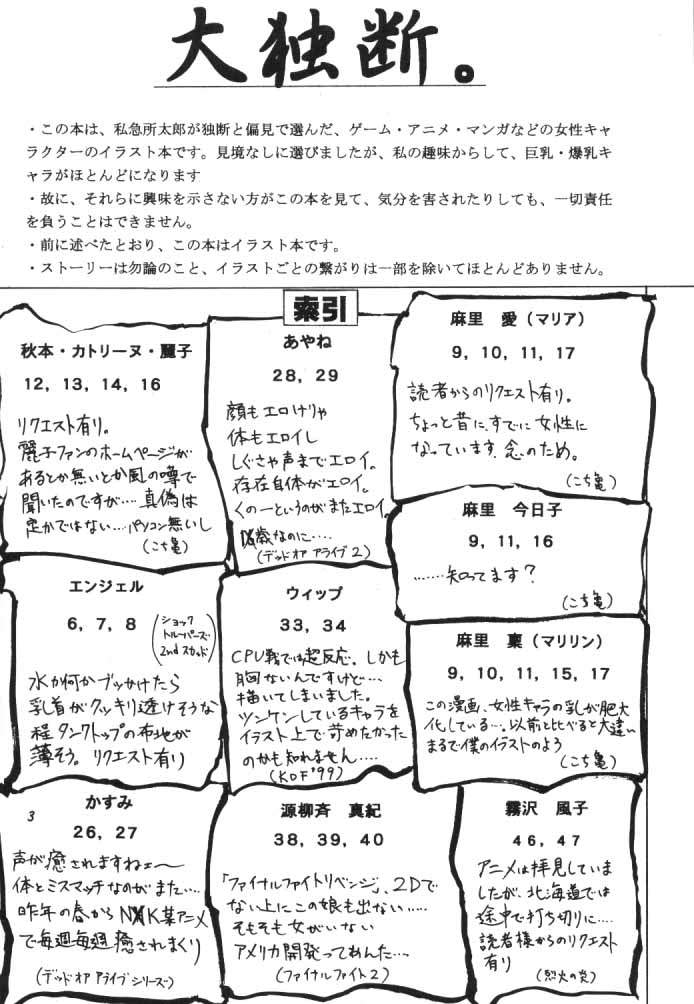 大独断。
・この本は、私急所太郎が独断と偏見で選んだ、ゲーム・アニメ・マンガなどの女性キャ
ラクターのイラスト本です。見境なしに選びましたが、私の趣味からして、巨乳・爆乳キ
ャラがほとんどになります
・故に、それらに興味を示さない方がこの本を見て、気分を害されたりしても、一切責任
を負うことはできません。
・前に述べたとおり、この本はイラスト本です。
・ストーリーは勿論のこと、イラストごとの繋がりは一部を除いてほとんどありません。
索引
秋本・カトリーヌ・麗子
12, 13, 14, 16
リクエスト有り。
麗子ファンのホームページが
あるとか無いとか風の噂で
聞いたのですが…. 真偽は
定かではない… パソコン無いし
(こち亀)
あやね
28, 29
顔もエロけりゃ
体もエロイし
しぐさや声までエロイ。
存在自体がエロイ。
くの一というのがまたエロイ。
歳なのに….
(デッドオアアライブ2)
麻里 愛(マリア)
9, 10, 11, 17
読者からのリクエスト有り。
ちょっと昔に、すでに女性に
なっています. 念のため。
(こち亀)
麻里 今日子
9, 11, 16
……知ってます?
(こち亀)
エンジェル
6, 7, 8
(ショック
トルーパーズ
2ndスカッド)
水か何かブッかけたら
乳首がクッキリ透けそうな
程タンクトップの布地が
薄そう。リクエスト有り
ウィップ
33, 34
CPU戦では超反応、しかも
胸ないんですけど…
描いてしまいました。
ツンケンしているキャラを
イラスト上で苛めたかった
のかも知れません….
(KOF'99)
麻里 稟(マリリン)
9, 10, 11, 15, 17
この漫画、女性キャラの乳が肥大
化している…. 以前と比べると大違い
まるで僕のイラストのよう
(こち亀)
3
かすみ
26, 27
声が癒されますねェ〜
体とミスマッチなのがまた….
昨年の春からNXK某アニメ
で毎週毎週癒されまくり
(デッドオアアライブシリーズ)
源柳斉 真紀
38, 39, 40
「ファイナルファイトリベンジ」、2Dで
ない上にこの娘も出ない……
そもそも女がいない
アメリカ開発ってあんた…。
(ファイナルファイト2)
霧沢 風子
46, 47
アニメは拝見していま
したが、北海道では
途中で打ち切りに….
読者様からのリクエスト
有り
(烈火の炎)